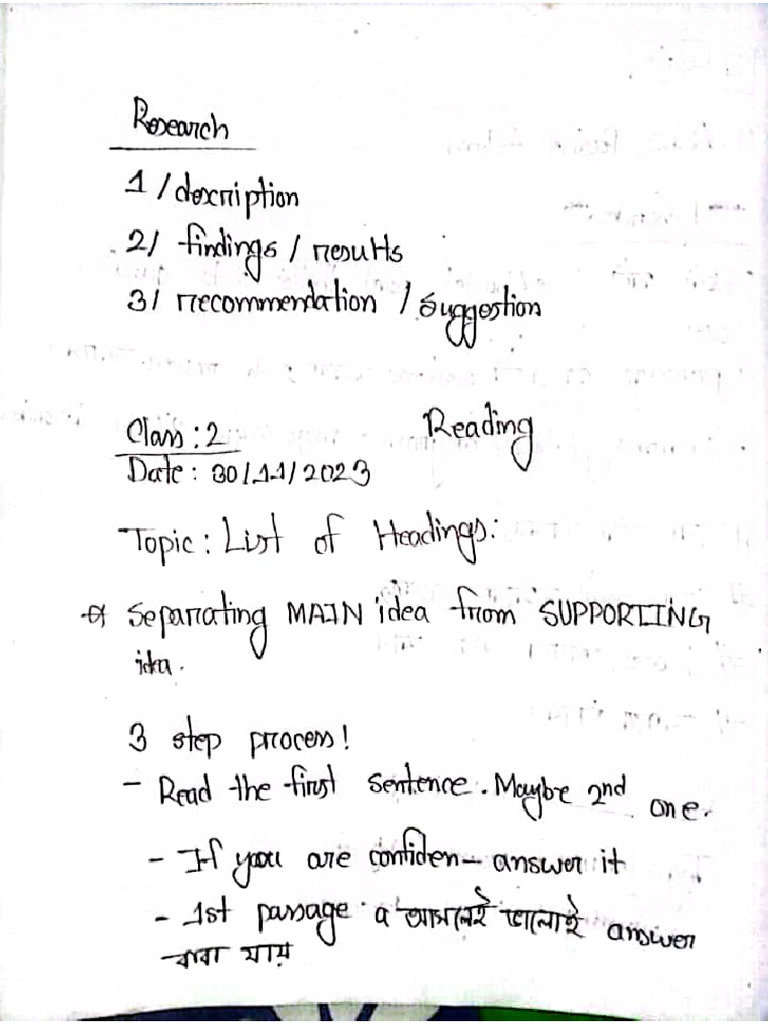 Research
1/ description
2/ findings / results
3/ recommendation / suggestion
Class : 2
Reading
Date : 30/11/2023
Topic : List of Headings:
Separating MAIN idea from SUPPORTING
idea.
3 step process!
- Read the first sentence. Maybe 2nd one.
- If you are confiden- answer it
- 1st passage a আসলেই ভালোই answer
করা যায়